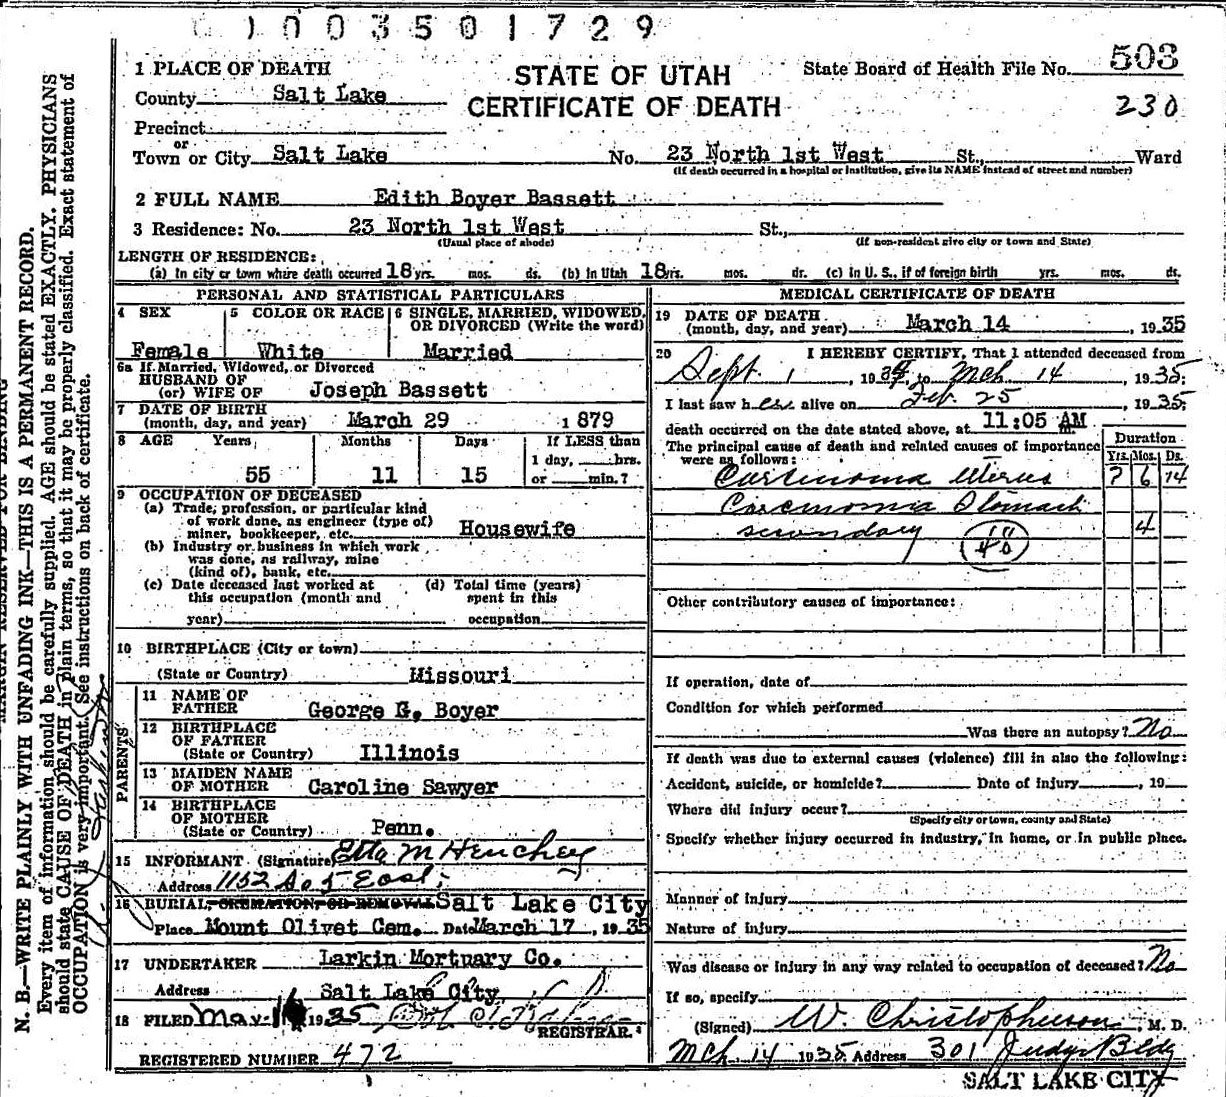 1003501729
503
1 PLACE OF DEATH
STATE OF UTAH
State Board of Health File No.
County Salt Lake
CERTIFICATE OF DEATH
230
Precinct
or
Town or City Salt Lake No. 23 North 1st West St., Ward
(If death occurred in a hospital or institution, give its NAME instead of street and number)
2 FULL NAME Edith Boyer Bassett
3 Residence: No. 23 North 1st West St.,
(Usual place of abode) (If non-resident give city or town and State)
LENGTH OF RESIDENCE:
(a) In city or town where death occurred 18 yrs. mos. ds. (b) In Utah 18 yrs. mos. dr. (c) in U. S., if of foreign birth yrs. mos. ds.
PERSONAL AND STATISTICAL PARTICULARS
4 SEX 5 COLOR OR RACE 6 SINGLE, MARRIED, WIDOWED, OR DIVORCED (Write the word)
Female White Married
6a If Married, Widowed, or Divorced
HUSBAND OF
(or) WIFE OF Joseph Bassett
7 DATE OF BIRTH
(month, day, and year) March 29 1879
8 AGE Years Months Days If LESS than
1 day, hrs.
55 11 15 or min.?
9 OCCUPATION OF DECEASED
(a) Trade, profession, or particular kind
of work done, as engineer (type of)
miner, bookkeeper, etc. Housewife
(b) Industry or business in which work
was done, as railway, mine
(kind of), bank, etc.
(c) Date deceased last worked at (d) Total time (years)
this occupation (month and spent in this
year) occupation
10 BIRTHPLACE (City or town)
(State or Country) Missouri
PARENTS
11 NAME OF
FATHER George G. Boyer
12 BIRTHPLACE
OF FATHER
(State or Country) Illinois
13 MAIDEN NAME
OF MOTHER Caroline Sawyer
14 BIRTHPLACE
OF MOTHER
(State or Country) Penn.
15 INFORMANT (Signature) Etta M Henchey
Address 1152 So 5 East
16 BURIAL, CREMATION, OR REMOVAL Salt Lake City
Place Mount Olivet Cem. Date March 17, 1935
17 UNDERTAKER Larkin Mortuary Co.
Address Salt Lake City
18 FILED 1935
REGISTRAR.
REGISTERED NUMBER 472
MEDICAL CERTIFICATE OF DEATH
19 DATE OF DEATH
(month, day, and year) March 14, 1935
20 I HEREBY CERTIFY, That I attended deceased from
Sept. 1, 1934, to Mch 14, 1935;
I last saw her alive on Feb. 25, 1935;
death occurred on the date stated above, at 11:05 AM m.
The principal cause of death and related causes of importance
were as follows: Duration
Yrs. Mos. Ds.
Carcinoma Uterus ? 6 14
Carcinoma Stomach
secondary 4
Other contributory causes of importance:
If operation, date of
Condition for which performed
Was there an autopsy? No
If death was due to external causes (violence) fill in also the following:
Accident, suicide, or homicide? Date of injury, 19
Where did injury occur?
(Specify city or town, county and State)
Specify whether injury occurred in industry, in home, or in public place.
Manner of injury
Nature of injury
Was disease or injury in any way related to occupation of deceased? No
If so, specify
(Signed) W. Christopherson, M. D.
Mch. 14 1935 Address 301 Judge Bldg
SALT LAKE CITY
N. B.—WRITE PLAINLY WITH UNFADING INK—THIS IS A PERMANENT RECORD.
Every item of information should be carefully supplied. AGE should be stated EXACTLY. PHYSICIANS
should state CAUSE OF DEATH in plain terms, so that it may be properly classified. Exact statement of
OCCUPATION is very important. See instructions on back of certificate.